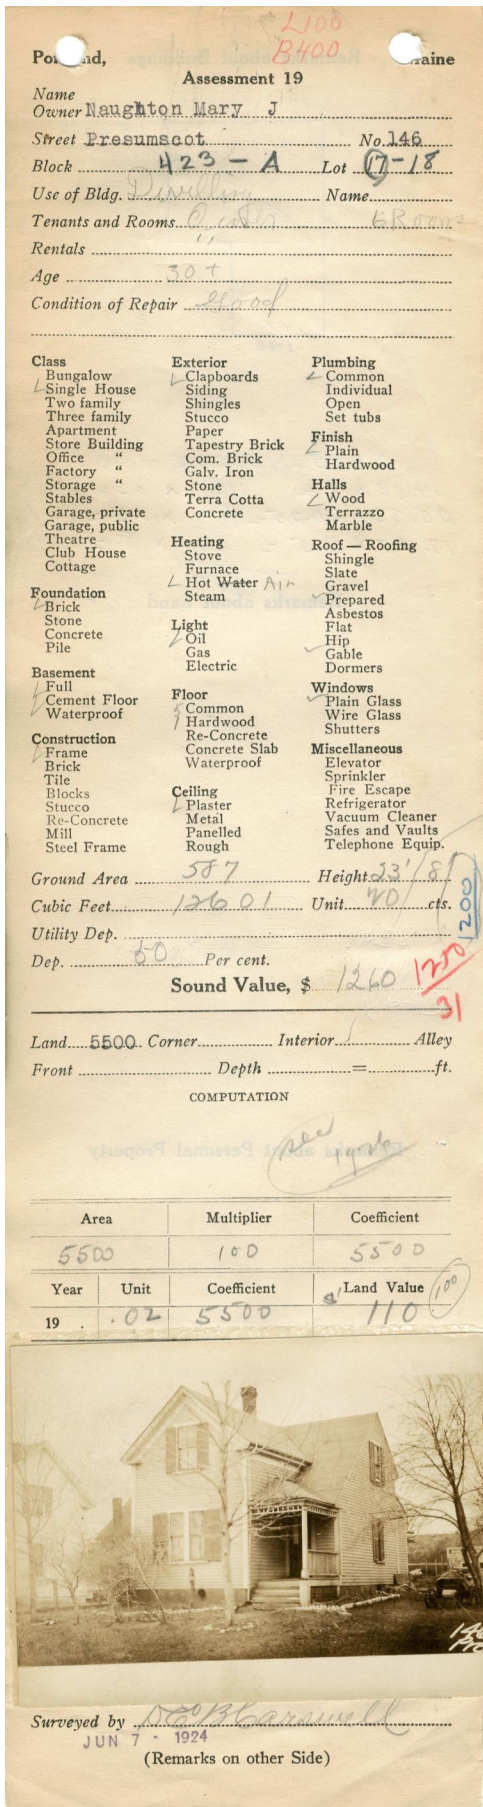 L100
B400
Portland, Maine
Assessment 19
Name
Owner Naughton Mary J
Street Presumscot No. 146
Block 423-A Lot 17-18
Use of Bldg. Dwelling Name
Tenants and Rooms Owner 6 Rooms
Rentals "
Age 30+
Condition of Repair Good
Class
Bungalow
Single House
Two family
Three family
Apartment
Store Building
Office "
Factory "
Storage "
Stables
Garage, private
Garage, public
Theatre
Club House
Cottage
Foundation
Brick
Stone
Concrete
Pile
Basement
Full
Cement Floor
Waterproof
Construction
Frame
Brick
Tile
Blocks
Stucco
Re-Concrete
Mill
Steel Frame
Exterior
Clapboards
Siding
Shingles
Stucco
Paper
Tapestry Brick
Com. Brick
Galv. Iron
Stone
Terra Cotta
Concrete
Heating
Stove
Furnace
Hot Water Air
Steam
Light
Oil
Gas
Electric
Floor
5 Common
1 Hardwood
Re-Concrete
Concrete Slab
Waterproof
Ceiling
Plaster
Metal
Panelled
Rough
Plumbing
Common
Individual
Open
Set tubs
Finish
Plain
Hardwood
Halls
Wood
Terrazzo
Marble
Roof—Roofing
Shingle
Slate
Gravel
Prepared
Asbestos
Flat
Hip
Gable
Dormers
Windows
Plain Glass
Wire Glass
Shutters
Miscellaneous
Elevator
Sprinkler
Fire Escape
Refrigerator
Vacuum Cleaner
Safes and Vaults
Telephone Equip.
Ground Area 587 Height 23'/8'
Cubic Feet 12601 Unit 20 cts.
1200
Utility Dep.
Dep. 50 Per cent.
Sound Value, $ 1260
1250
31
Land 5500 Corner Interior Alley
Front Depth = ft.
COMPUTATION
see 1926
Area Multiplier Coefficient
5500 100 5500
Year Unit Coefficient Land Value 100
19 . .02 5500 110
146
Surveyed by D E B Carswell
JUN 7 - 1924
(Remarks on other Side)